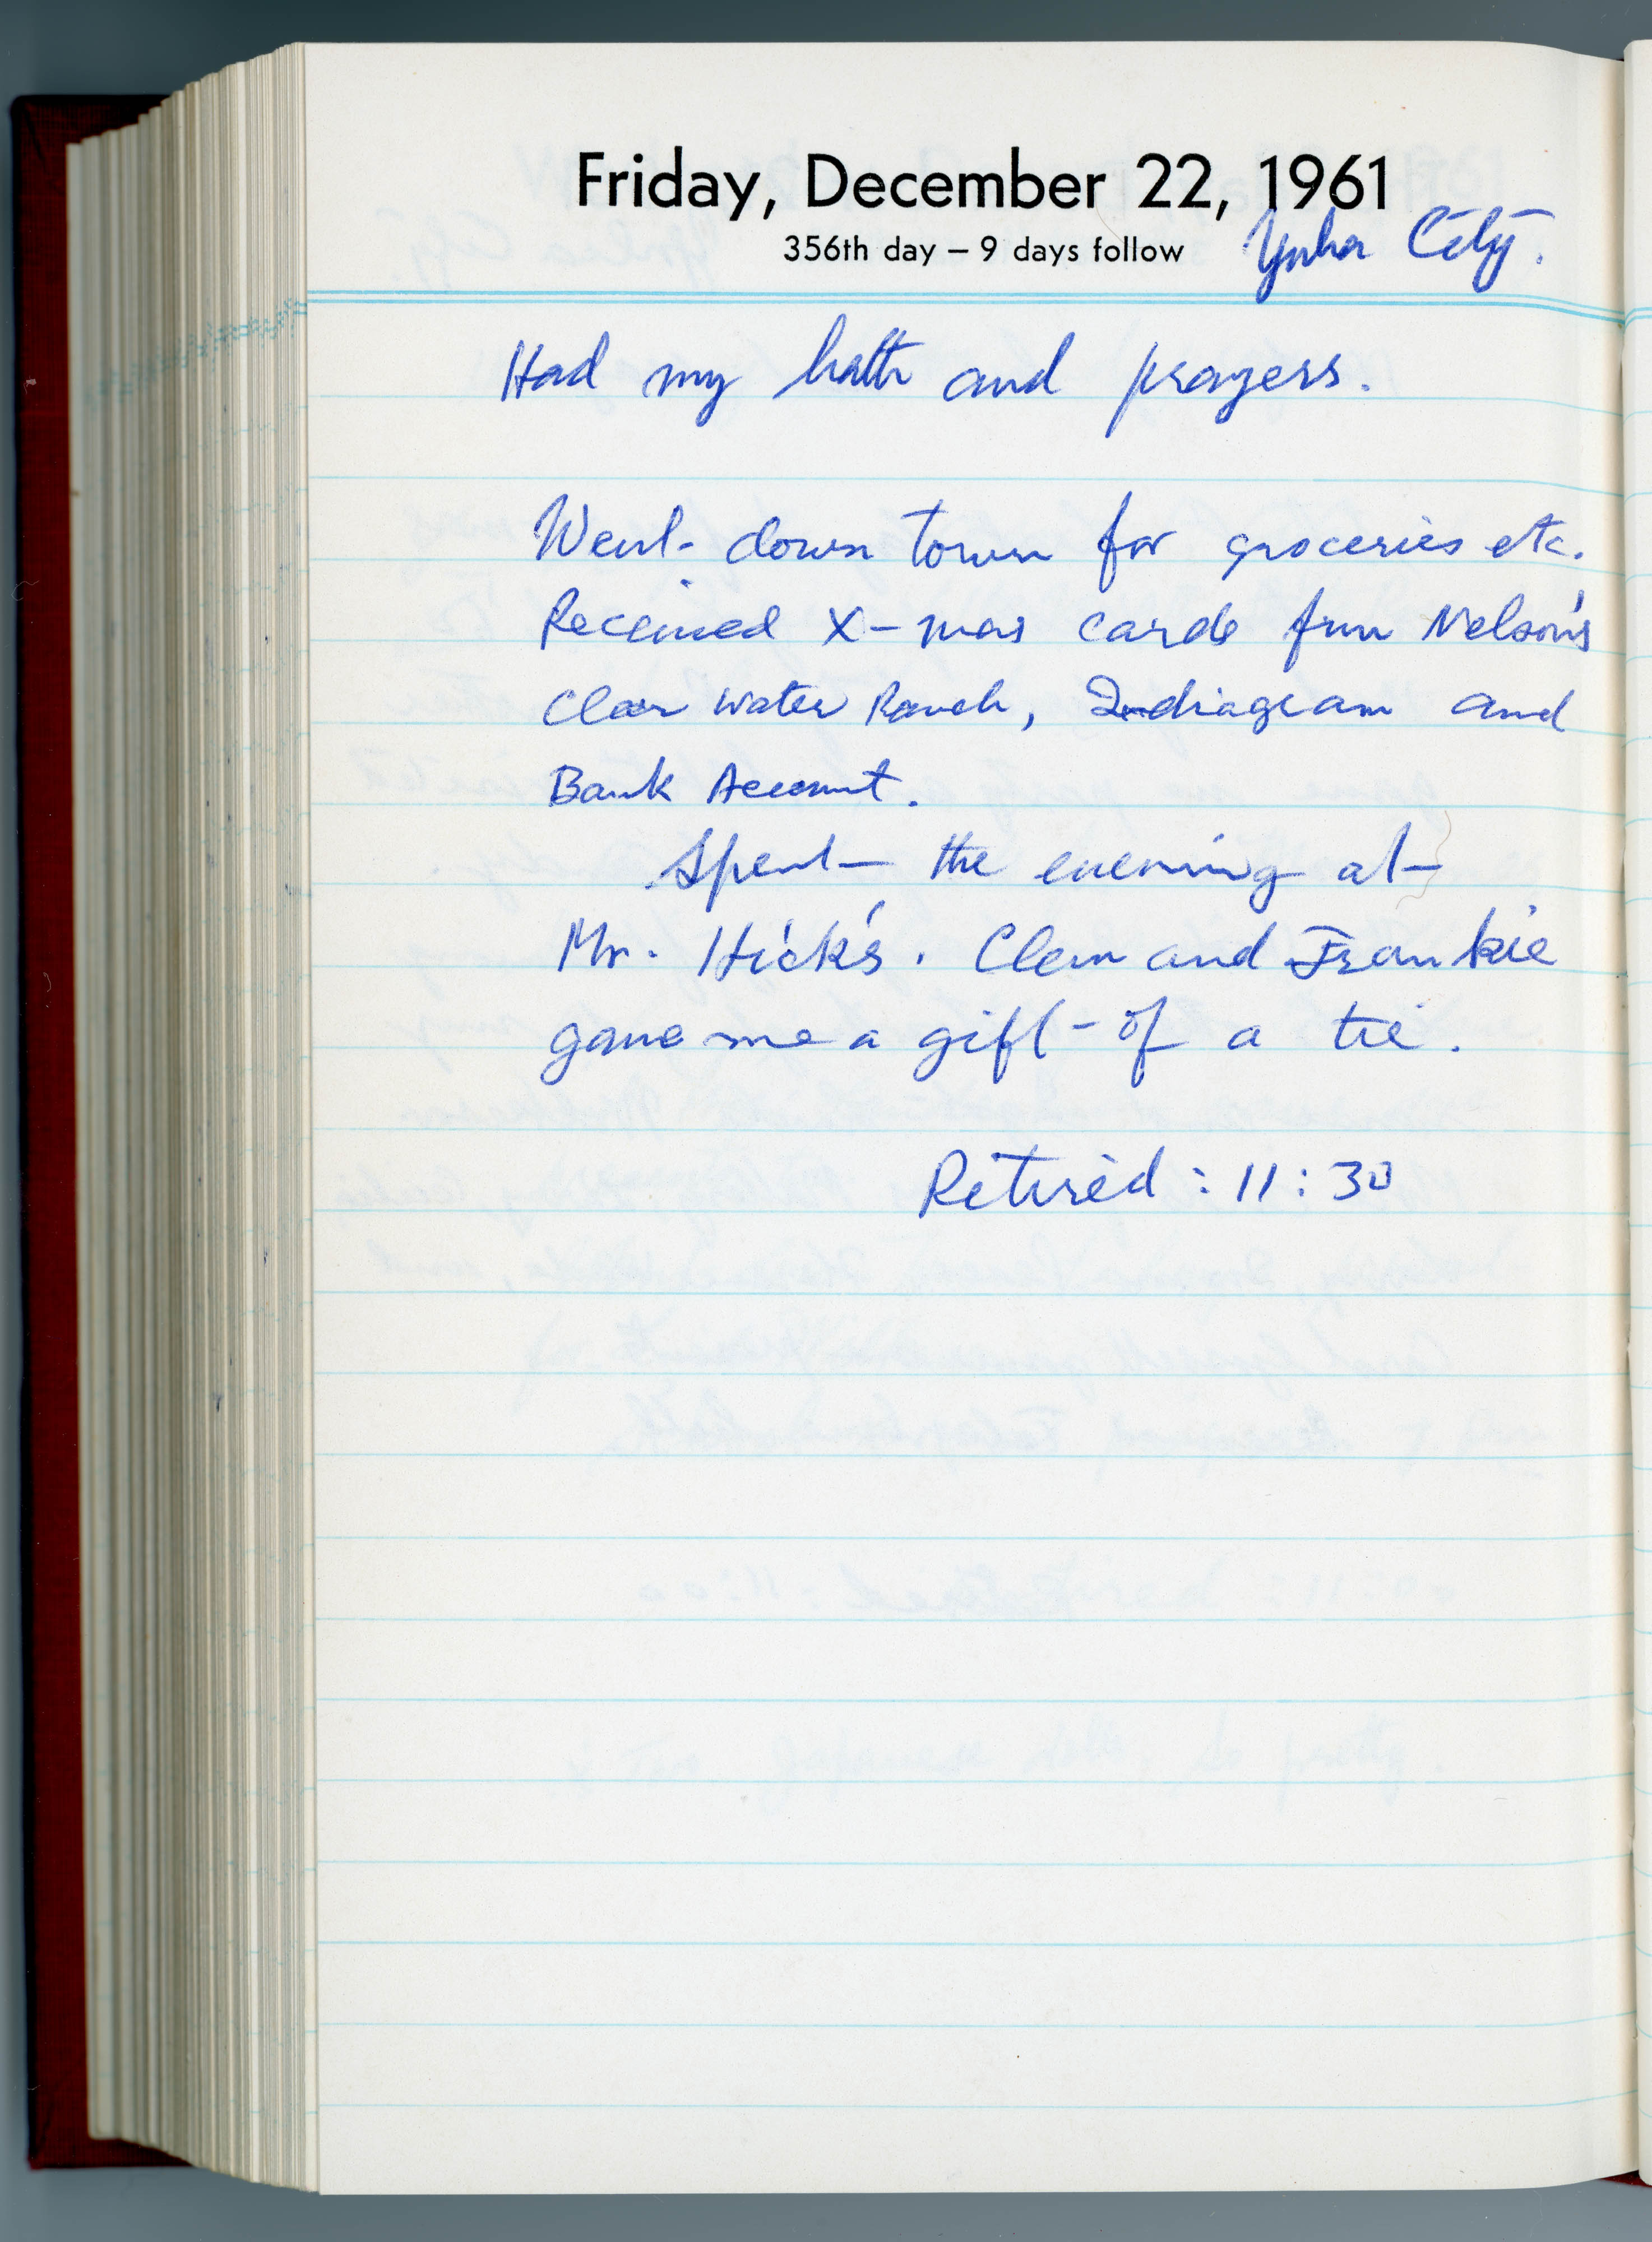 Friday, December 22, 1961
356th day – 9 days follow Yuba City.
Had my bath and prayers.
Went down town for groceries etc.
Received X-mas cards from Nelson's
Clear Water Ranch, and
Bank Account.
Spent the evening at
Mr. Hick's. Clem and Frankie
gave me a gift of a tie.
Retired : 11 : 30